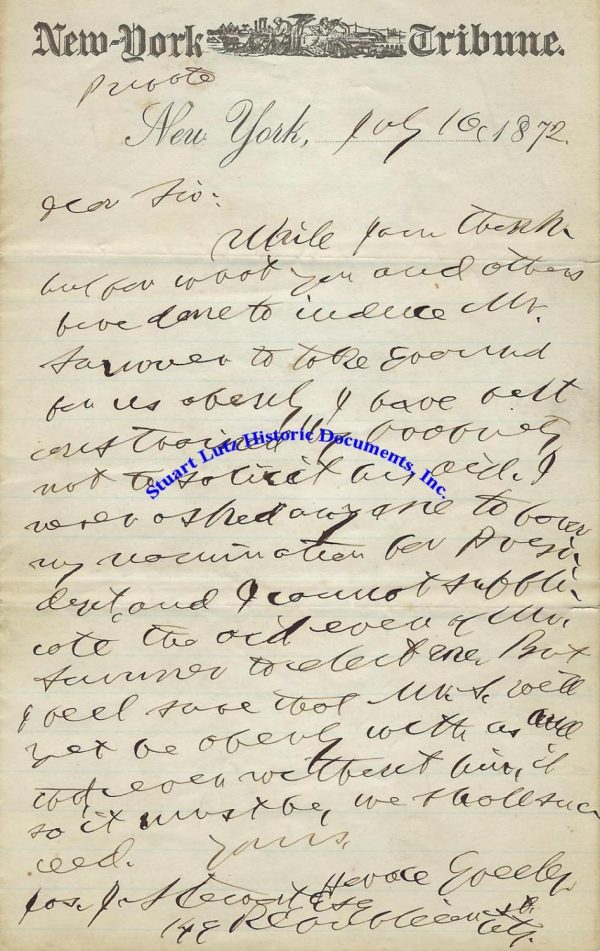 New-York Tribune.
Private
New York, July 16, 1872.
Dear Sir:
While I am thank-
ful for what you and others
have done to induce Mr.
Sumner to take ground
for us openly, I have felt
constrained by propriety
not to solicit his aid. I
never asked any one to favor
my nomination for Presi-
dent, and I cannot suppli-
cate the aid even of Mr.
Sumner to elect me. But
I feel sure that Mr. S. will
yet be openly with us and
that even without him, if
so it must be, we shall suc-
ceed. Yours,
Horace Greeley.
Jos. J. Stewart Esq
Stuart Lutz Historic Documents, Inc.